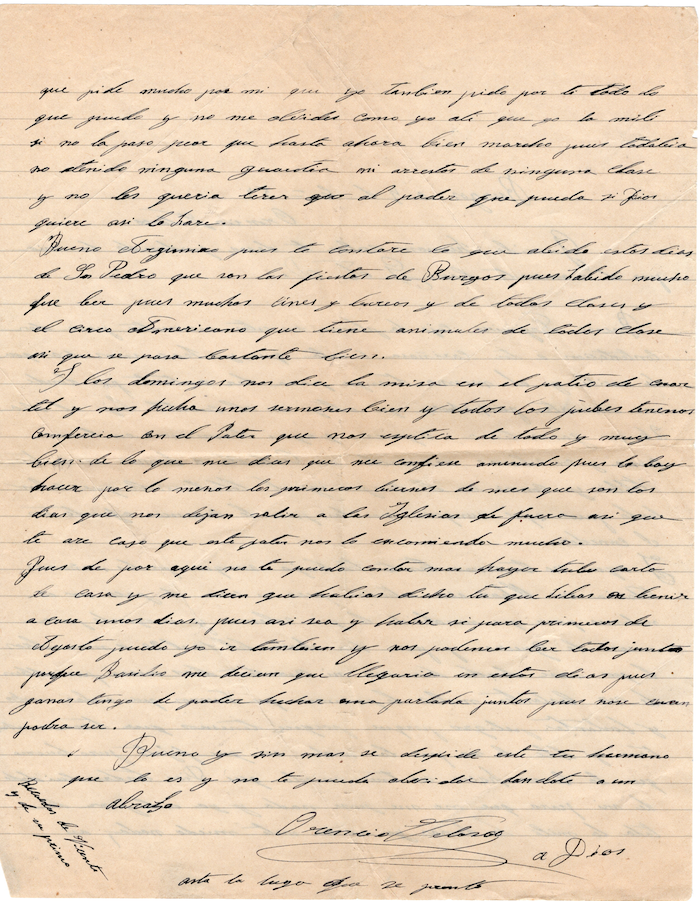 que pide mucho por mi que yo tambien pido por ti todo lo
que puedo y no me olvides como yo ati que yo la mili
si no la paso peor que hasta ahora bien marcho pues todabia
no etenido ninguna guardia ni arrestos de ninguna clase
y no los queria tener que al poder que pueda si Dios
quiere asi lo hare.
Bueno Argimiro pues te contare lo que abido estos dias
de San Pedro que son las fiestas de Burgos pues habido mucho
que ber pues muchos cines y barcos y de todas clases y
el circo Americano que tiene animales de todas clase
asi que se pasa bastante bien.
Y los domingos nos dice la misa en el patio de cuar
tel y nos hecha unos sermones bien y todos los juebes tenemos
comferecia con el Pater que nos esplica de todo y muy
bien. de lo que me dices que me confiese amenudo pues lo boy
hacer por lo menos los primeros biernes de mes que son los
dias que nos dejan salir a las Iglesias de fuera asi que
te are caso que este pater nos lo encomienda mucho.
Pues de por aqui no te puedo contar mas hayer tube carta
de casa y me dicen que habias dicho tu que hibas en benir
a casa unos dias. pues asi sea y haber si para primeros de
Agosto puedo yo ir tambien y nos podemos ber todos juntos
porque Basilio me decien que llegaria en estos dias pues
ganas tengo de poder hechar una parlada juntos pues nose cuan
podra ser.
Bueno y sin mas se despide este tu hermano
que lo es y no te pueda olvidar dandote a un
abrazo
Orencio Velasco
a Dios.
asta la luego que se pronto
Recuerdos de Vicente
y de su primo